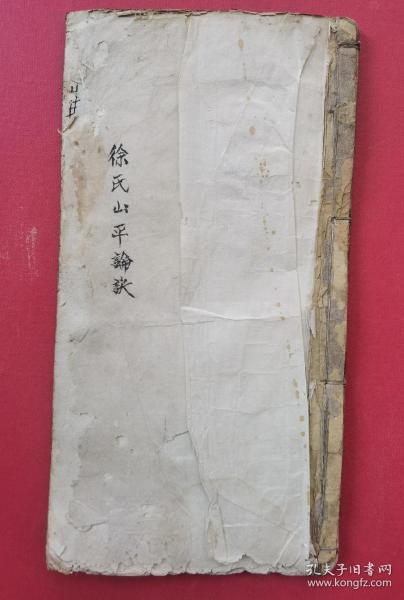 徐氏山平論訣
孔夫子旧书网
www.kongfz.com